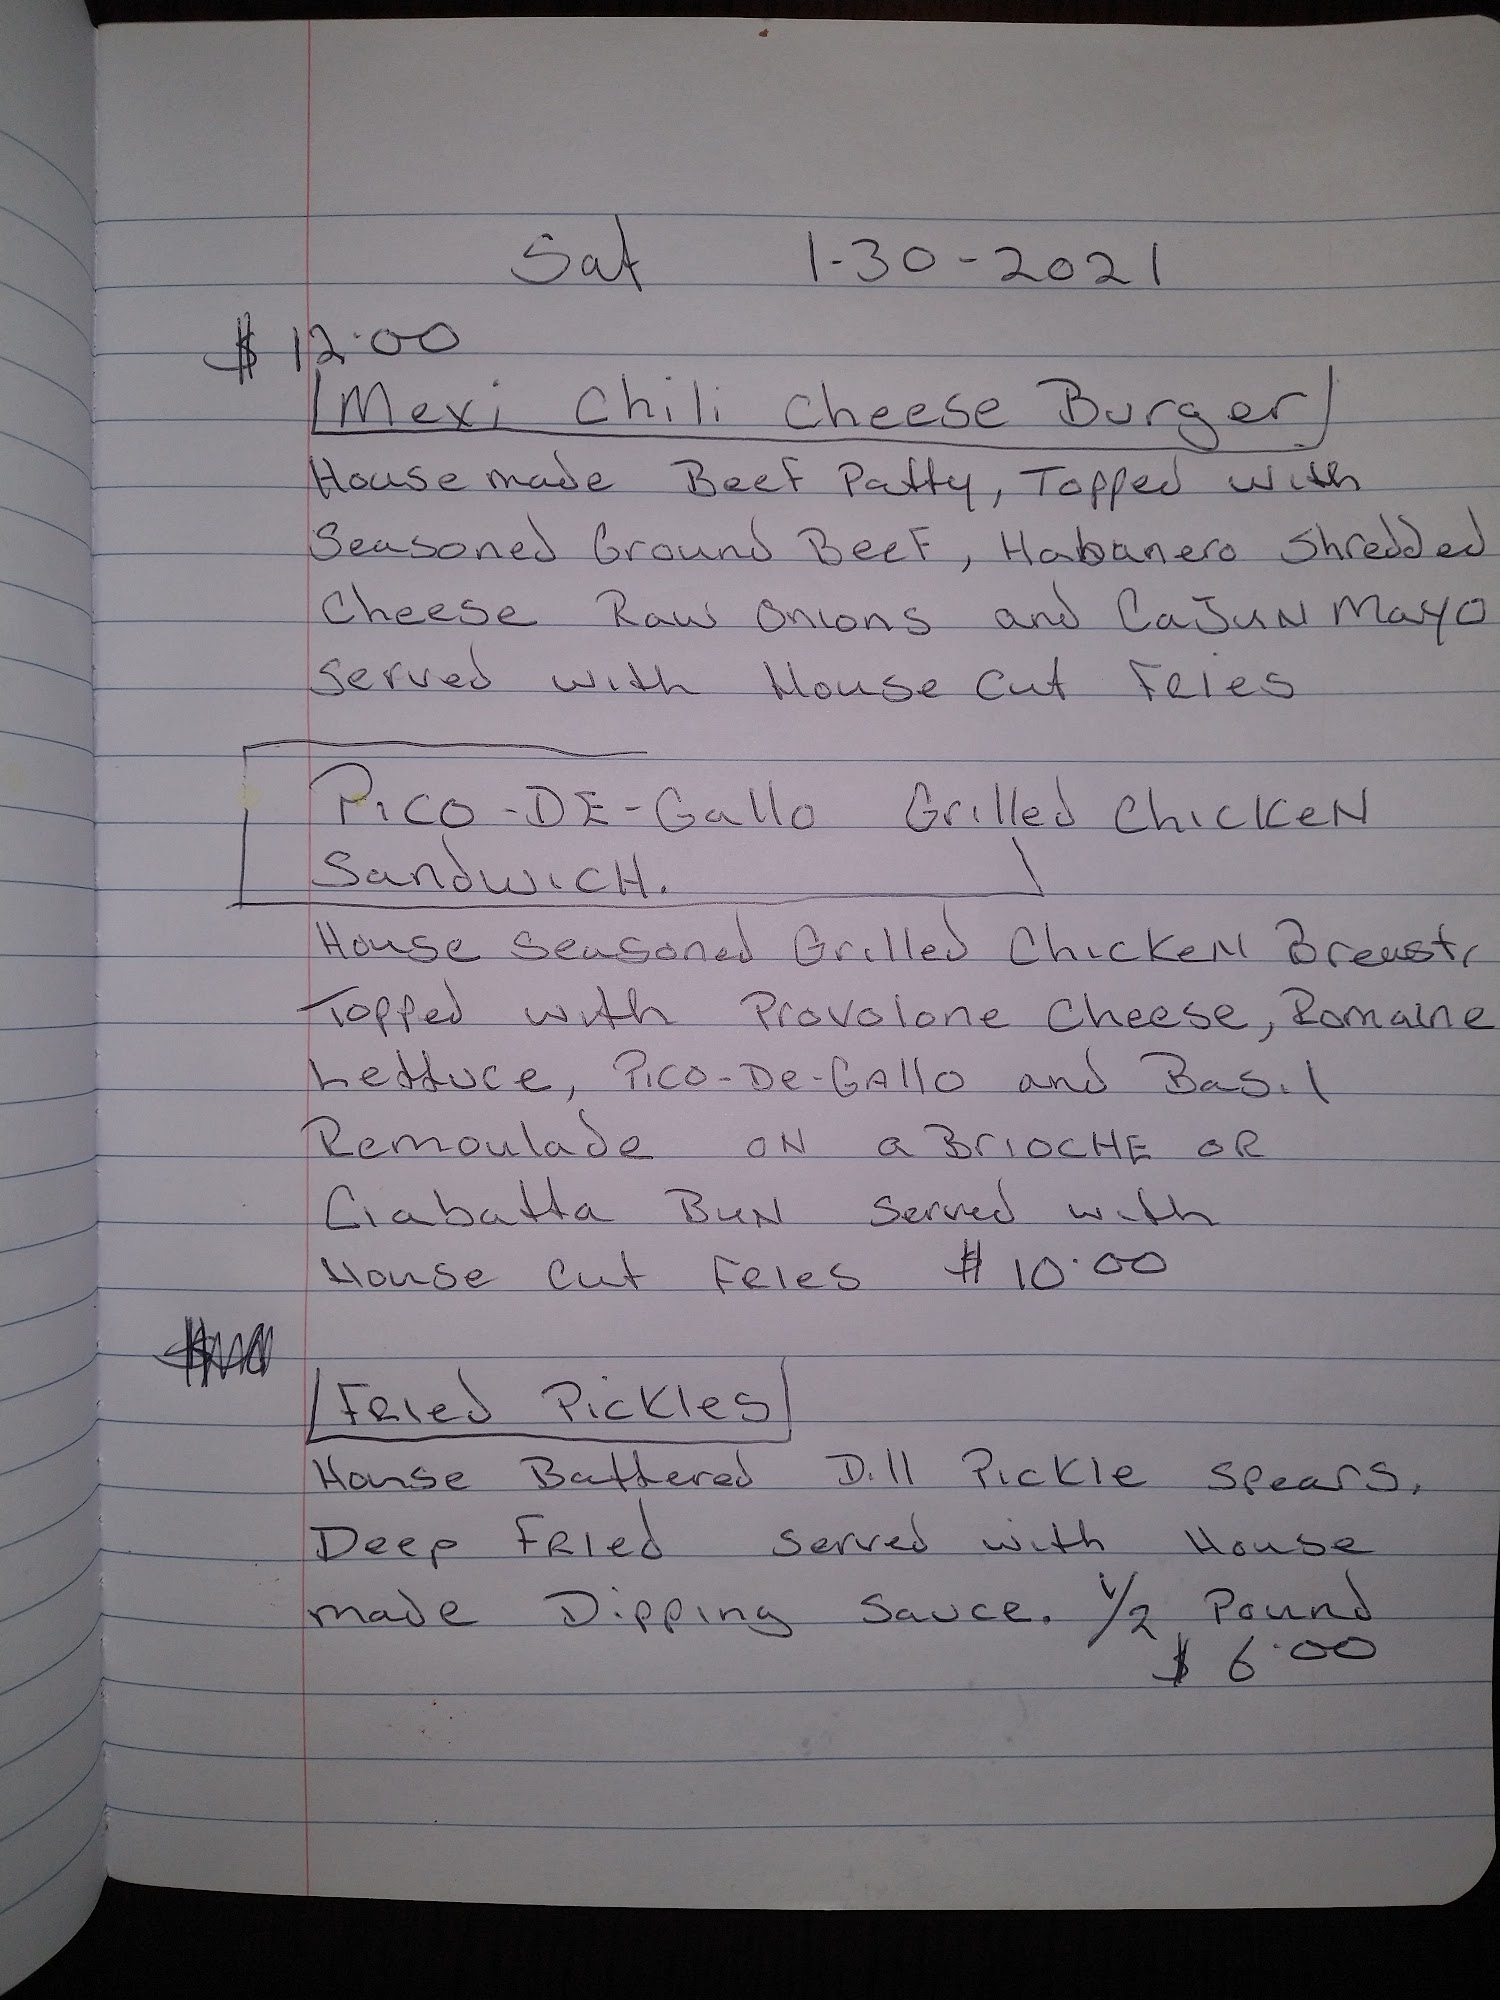 Sat 1-30-2021
$ 12.00
Mexi Chili Cheese Burger
House made Beef Patty, Topped with
Seasoned Ground Beef, Habanero Shredded
Cheese Raw Onions and Cajun Mayo
Served with House Cut Fries
Pico-De-Gallo Grilled Chicken
Sandwich.
House Seasoned Grilled Chicken Breast,
Topped with Provolone Cheese, Romaine
Lettuce, Pico-De-Gallo and Basil
Remoulade on a Brioche or
Ciabatta Bun Served with
House Cut Fries $ 10.00
Fried Pickles
House Battered Dill Pickle Spears.
Deep Fried Served with House
made Dipping Sauce. 1/2 Pound
$ 6.00